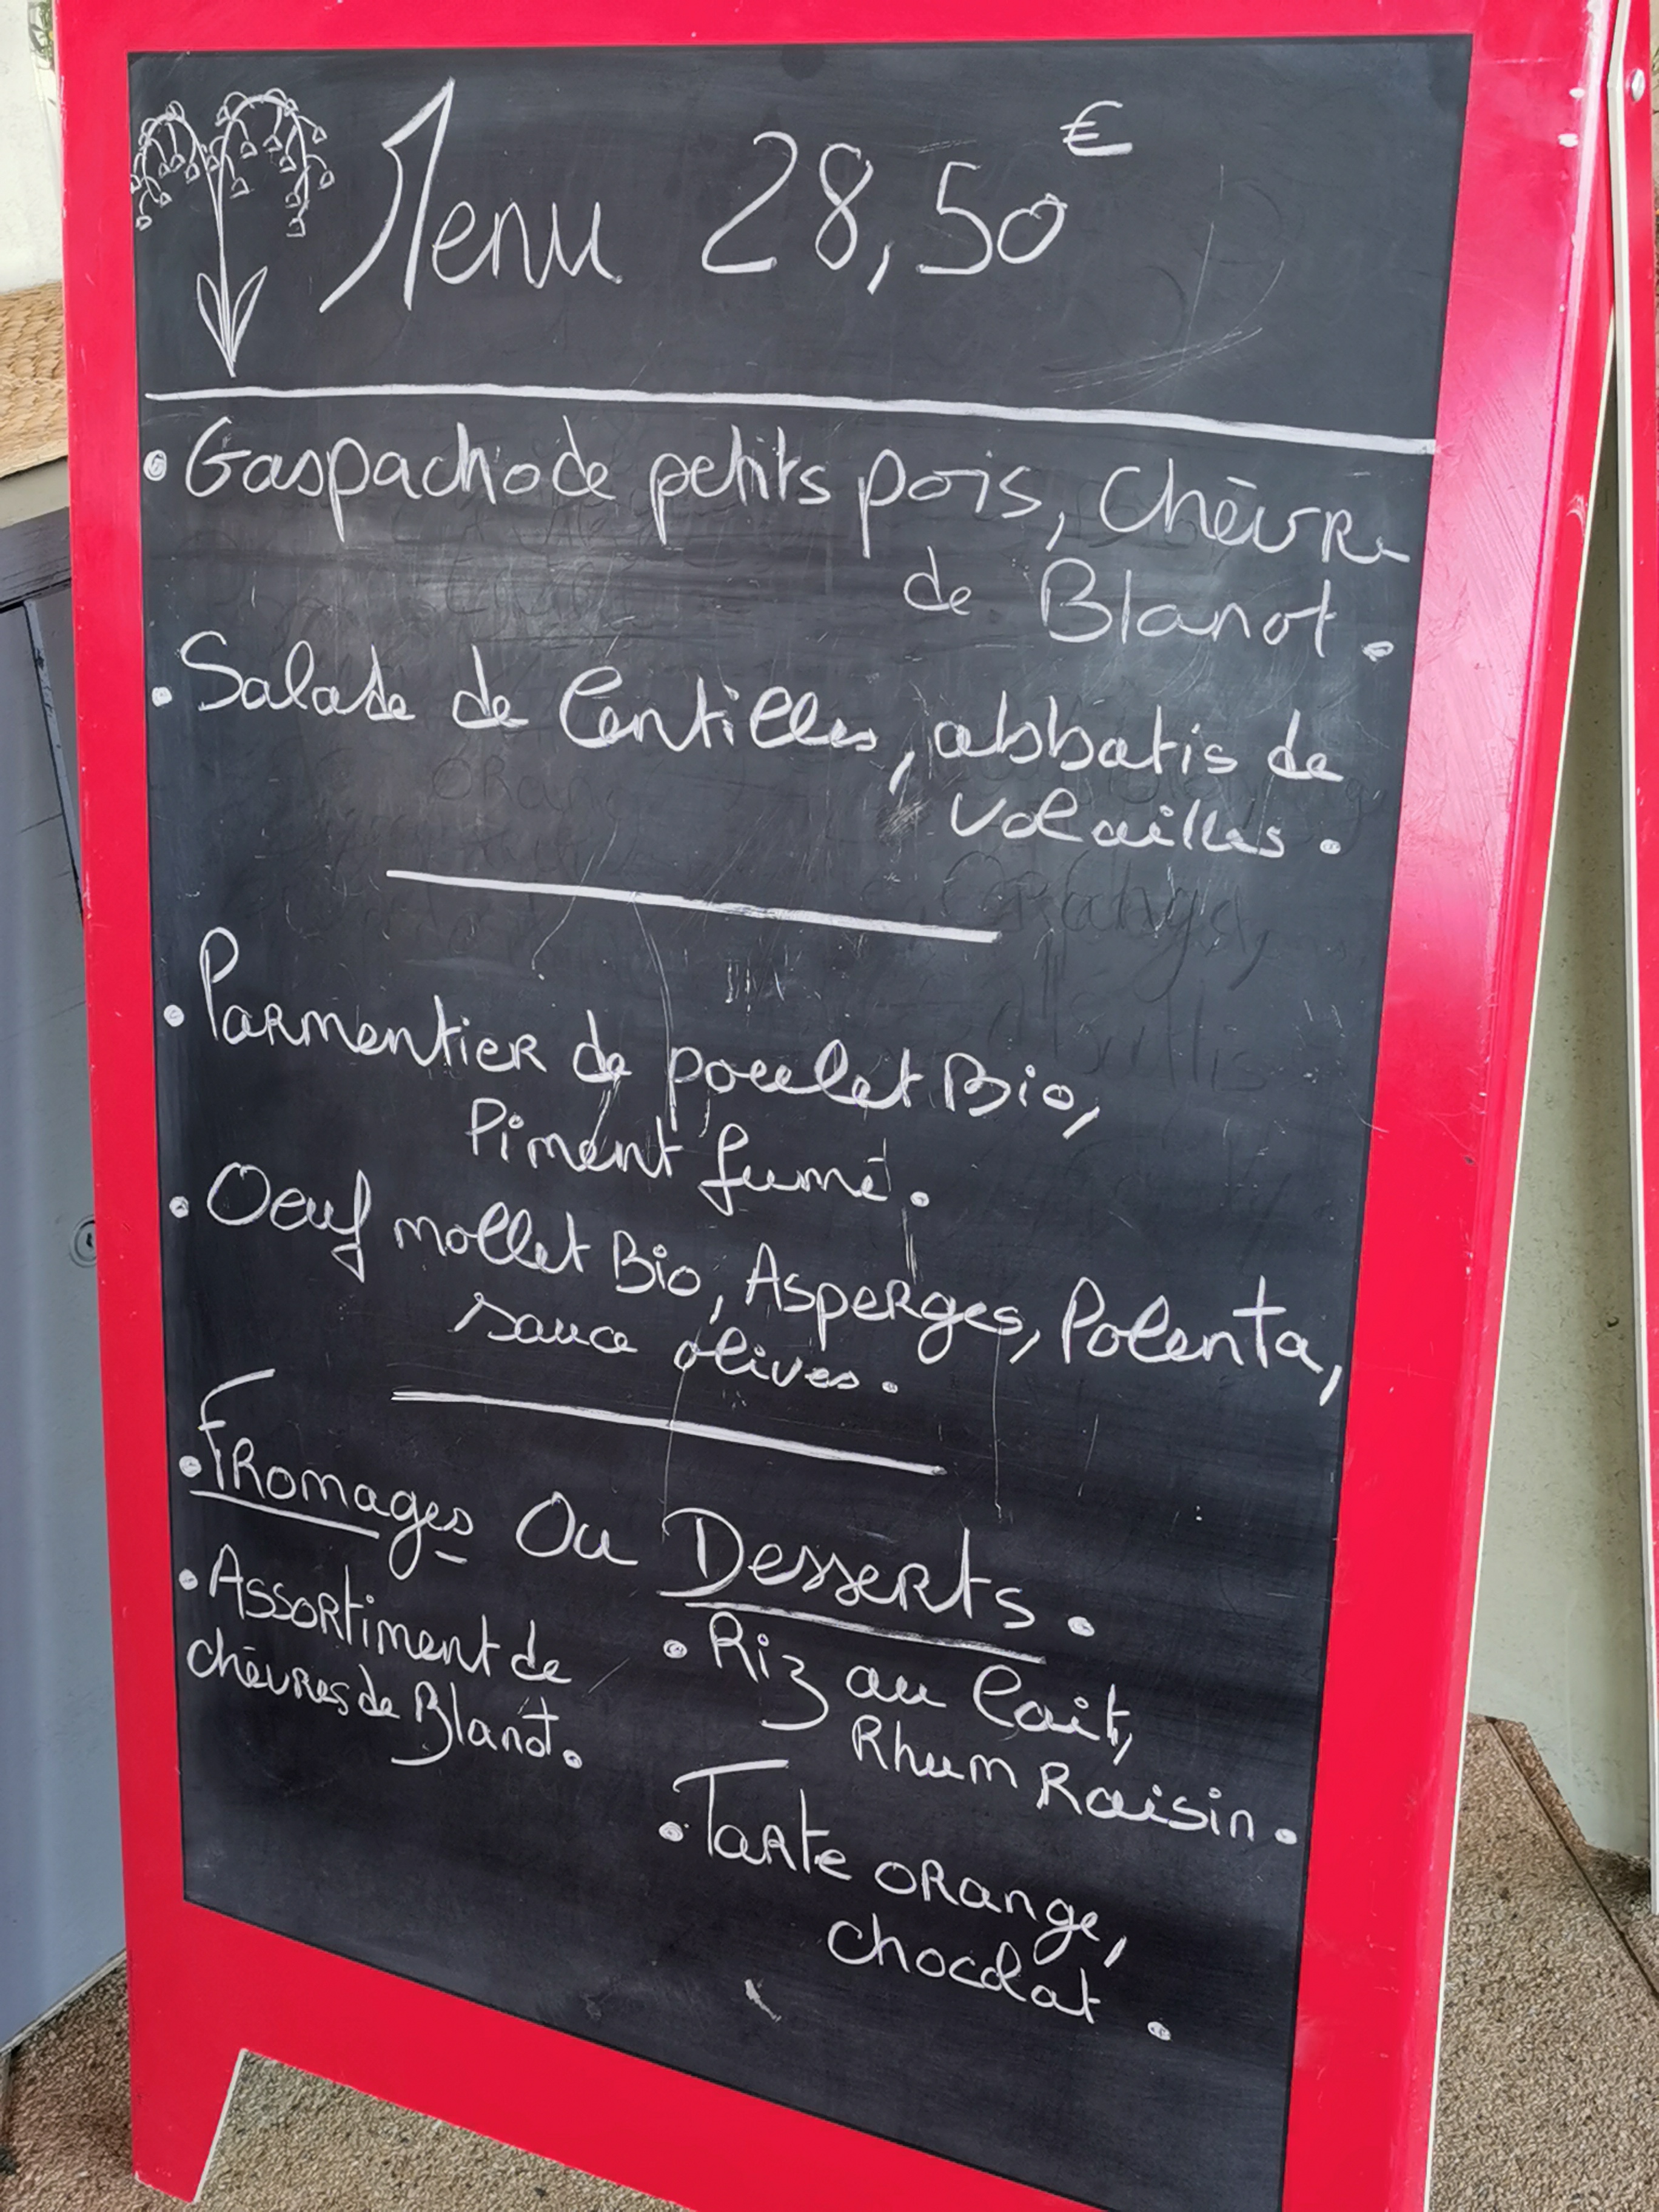 Menu 28,50 €
• Gaspacho de petits pois, Chèvre
de Blanot.
• Salade de lentilles, abbatis de
volailles.
• Parmentier de poulet Bio,
Piment fumé.
• Oeuf mollet Bio, Asperges, Polenta,
sauce olives.
• Fromages Ou Desserts.
• Assortiment de
chèvres de Blanot.
• Riz au lait,
Rhum Raisin.
• Tarte orange,
chocolat.